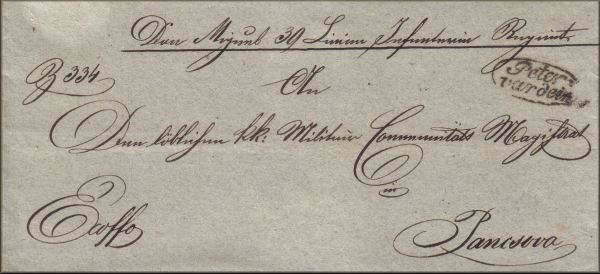 Don Miguel 39 Linien Infanterie Regiment
Z 334
An
Peter
wardein
Den löblichen kk: Militair Communitäts Magistrat
in
Exoffo
Pancsova